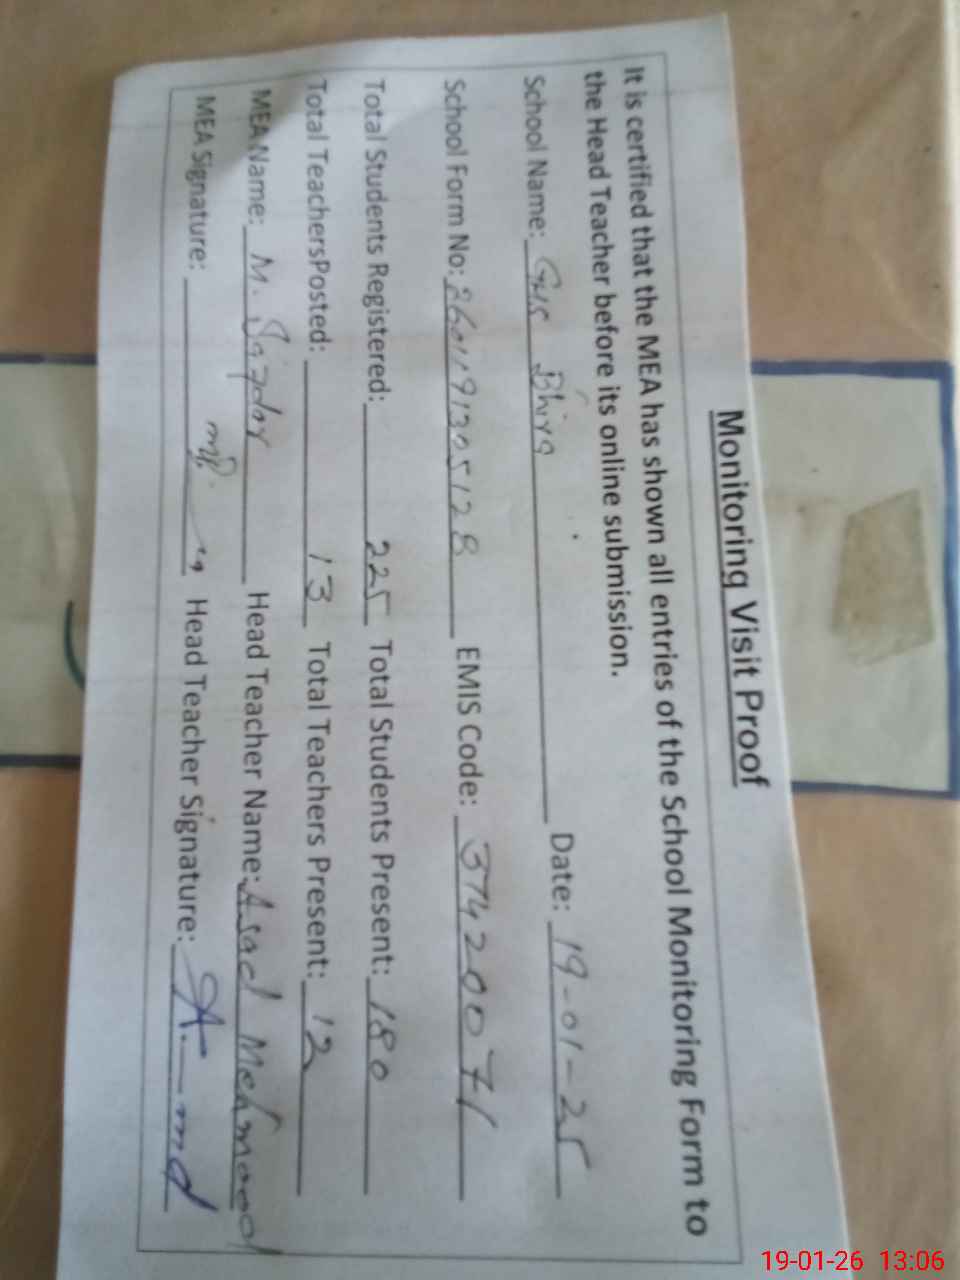 Monitoring Visit Proof
It is certified that the MEA has shown all entries of the School Monitoring Form to
the Head Teacher before its online submission.
School Name: GHS Bhiya Date: 19-01-25
School Form No: 2601191305128 EMIS Code: 37420071
Total Students Registered: 225 Total Students Present: 180
Total TeachersPosted: 13 Total Teachers Present: 12
MEA Name: M. Safdar Head Teacher Name: Asad Mehmood
MEA Signature: Head Teacher Signature:
19-01-26 13:06